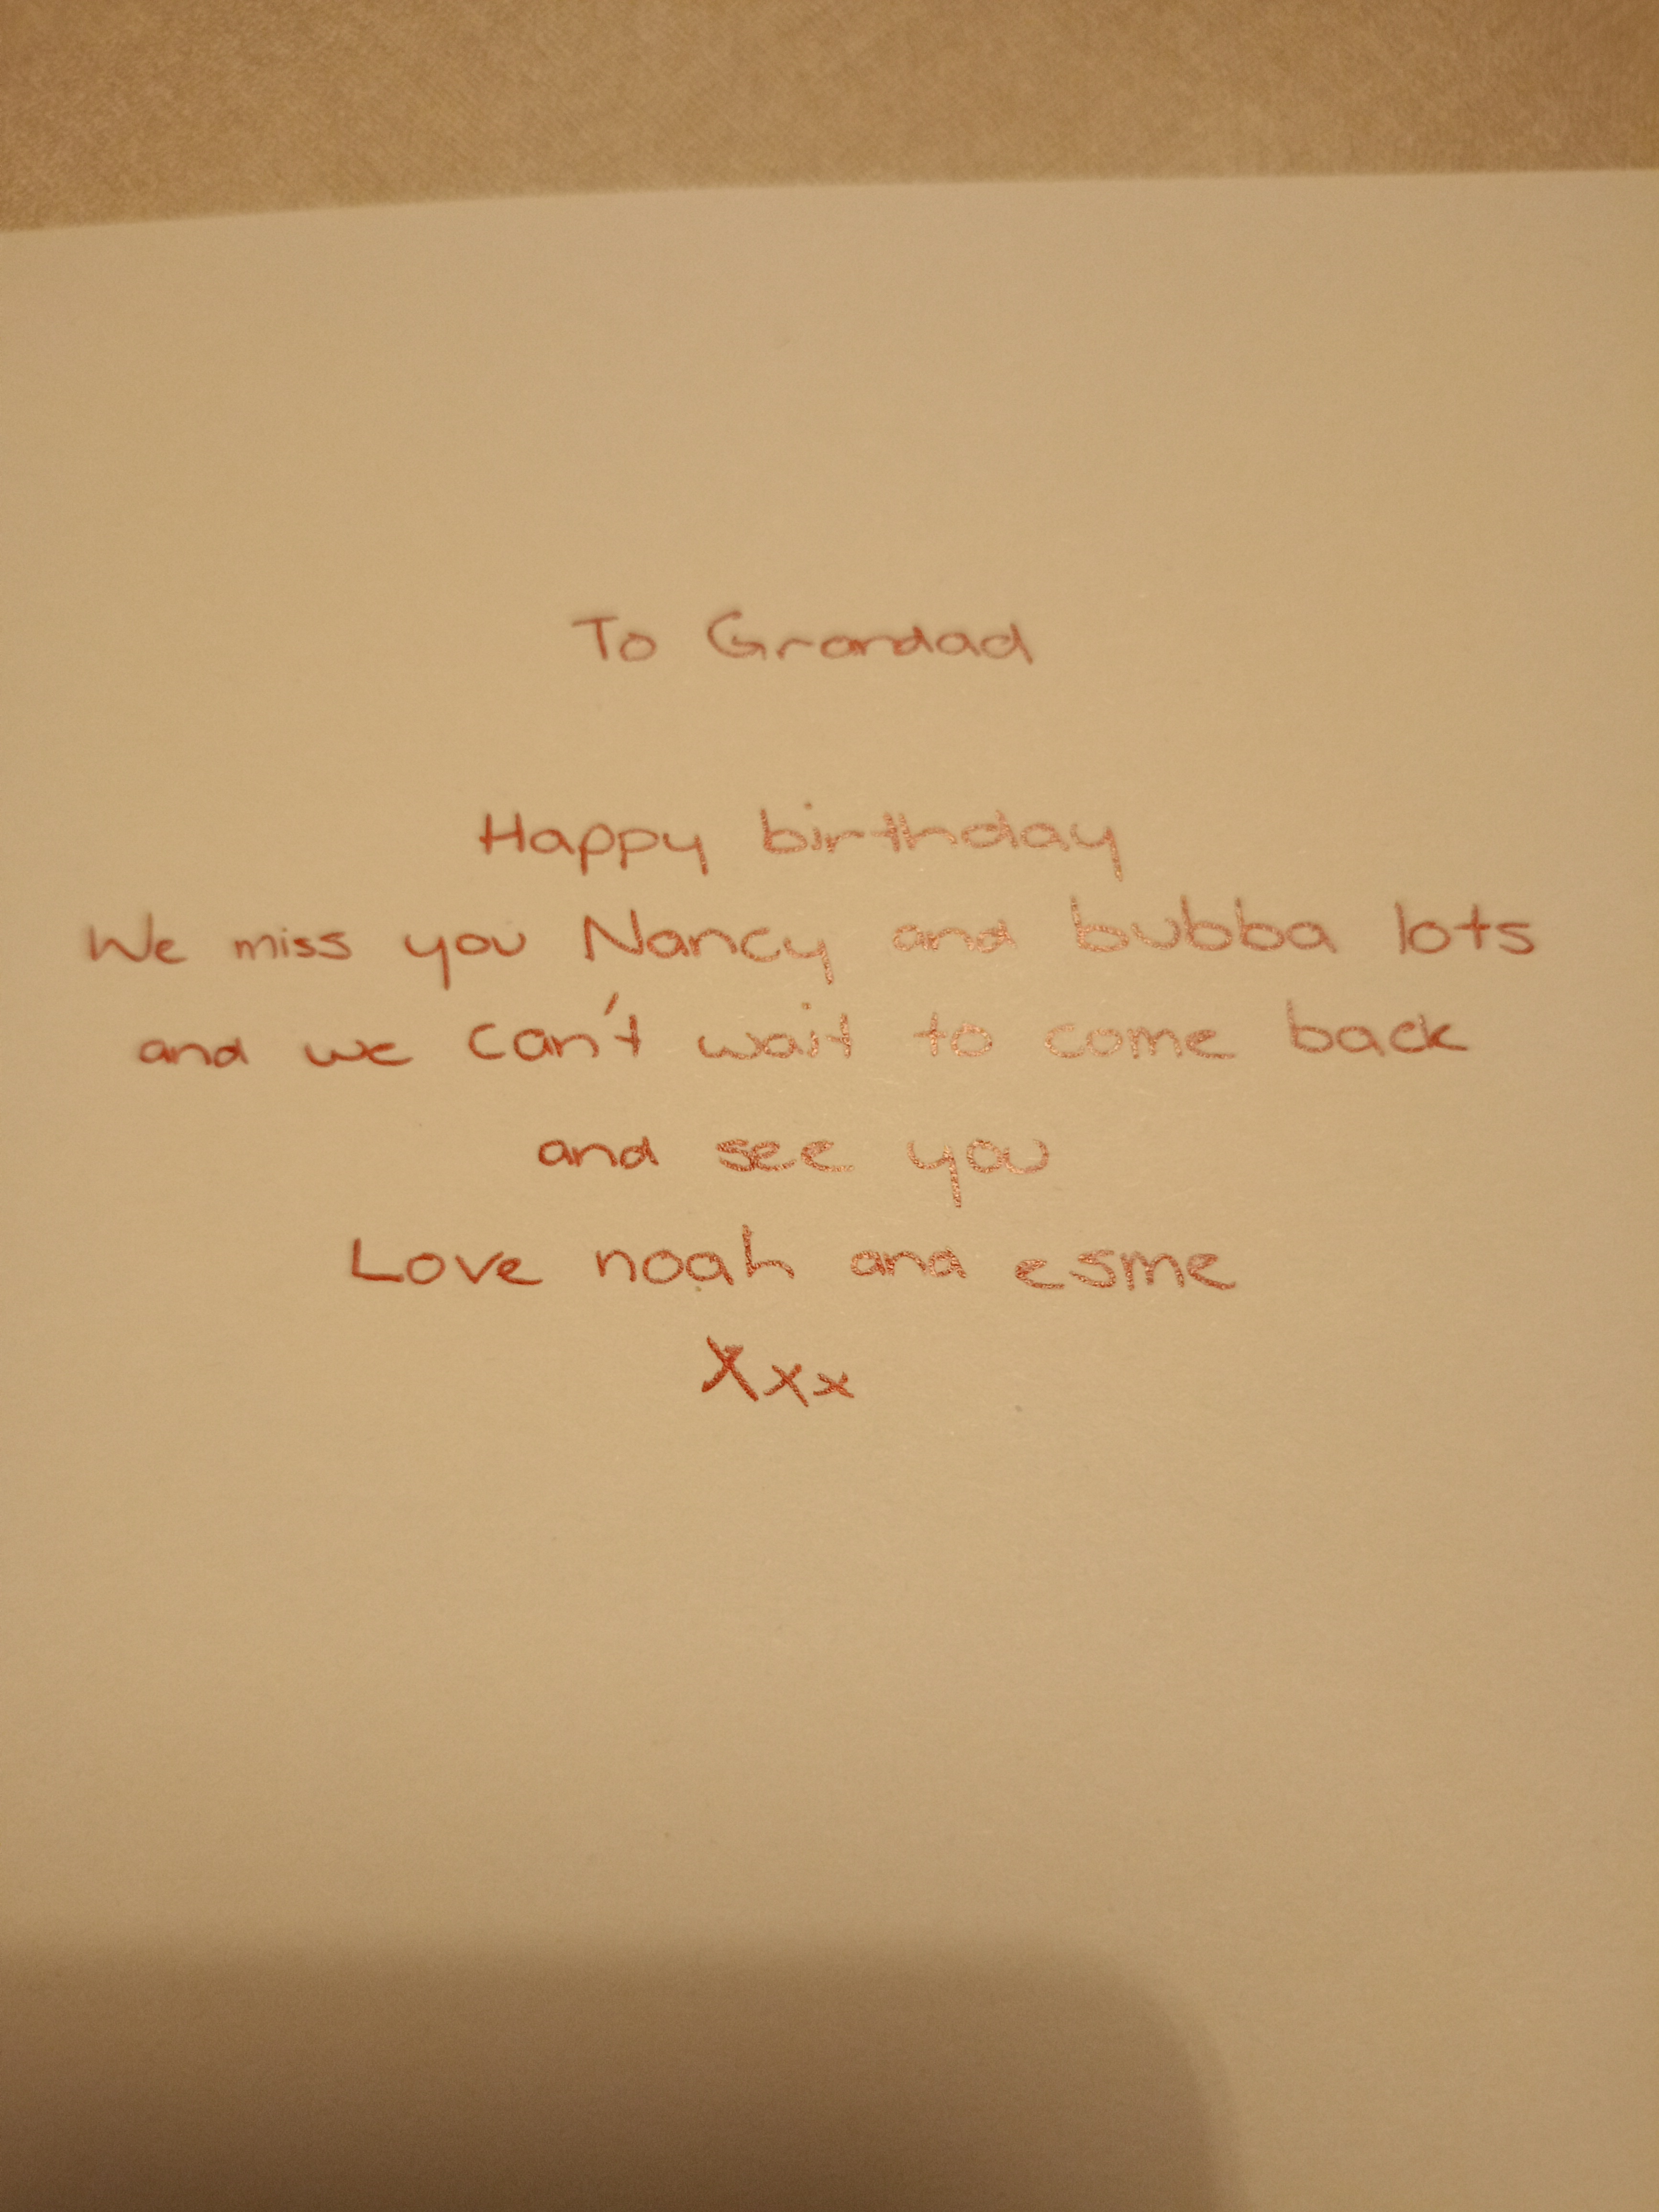 To Grandad
Happy birthday
We miss you Nancy and bubba lots
and we can't wait to come back
and see you
Love noah and esme
Xxx